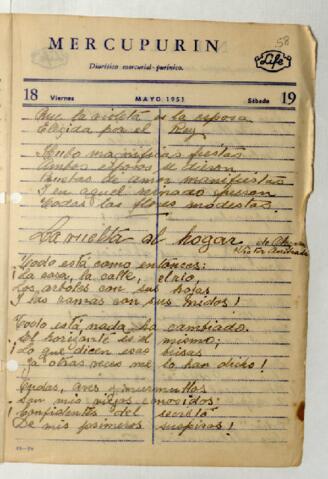 58
MERCUPURIN
Diurético mercurial-purínico.
Life
18 Viernes MAYO 1951 Sábado 19
Que la violeta es la esposa
Elegida por el Rey
Hubo magníficas fiestas
Ambos esposos se dieron
Pruebas de amor manifiestas
Y en aquel reinado fueron
Todas las flores modestas.
La vuelta al hogar
de Olegario
Victor Andrade
Todo está como entonces:
¡La casa, la calle, el rio,
Los arboles con sus hojas
Y las ramas con sus nidos!
Todo está, nada ha cambiado.
El horizonte es el mismo;
¡Lo que dicen esas brisas
Ya otras veces me lo han dicho!
Ondas, aves y murmullos
Son mis viejos conocidos:
¡Confidentes del secreto
De mis primeros suspiros!